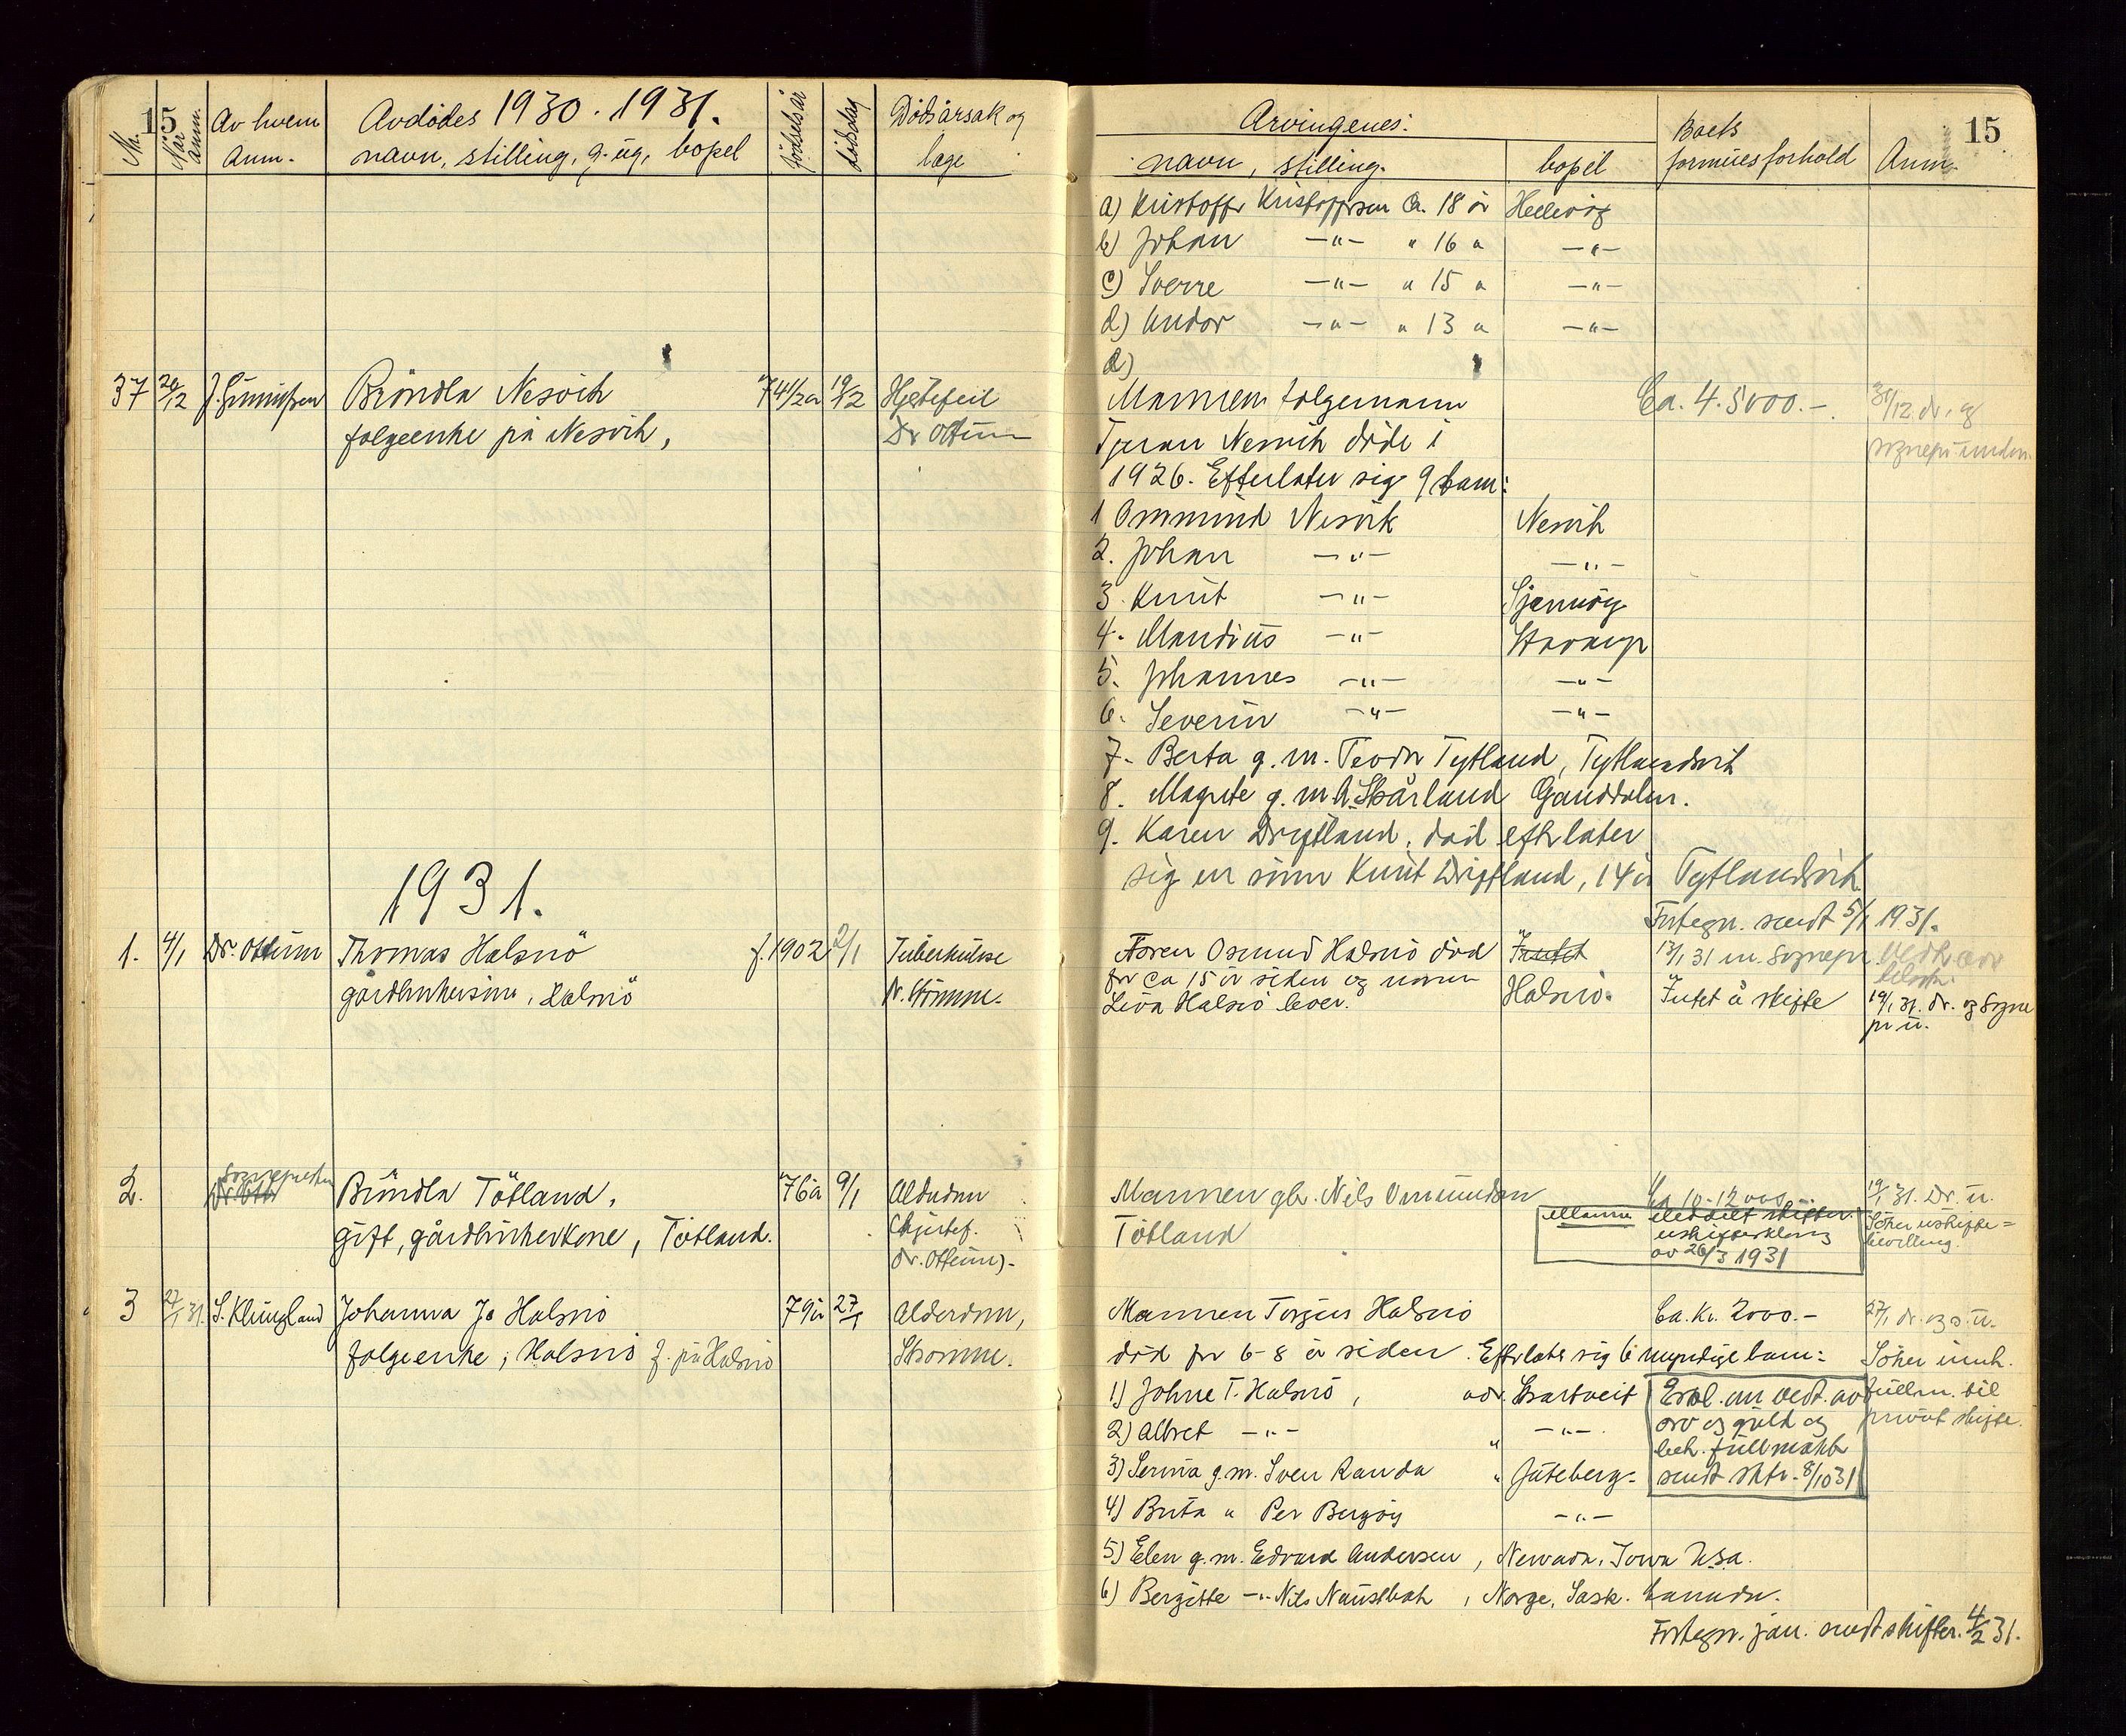 15
Nr.
Når anm.
Av hvem
anm.
Avdødes 1930. 1931.
navn, stilling, g. ug, bopel
fødselsår
dødsdag
Dødsårsak og
læge
37 J. Gunnufsen Bröndla Nesvik 74 1/2 år 19/12 Hjertefeil
folgeenke på Nesvik, Dr Ottum
1931.
1. 4/1 Dr. Ottum Thomas Halsnö f. 1902 2/1 Tuberkulose
gårdbrukersönn, Halsnö
2. Sognepresten Bröndla Tötland, 76 år 9/1 Alderdom
gift, gårdbrukerkone, Tötland. (hjertef.
Dr. Ottum).
3 27/1 31. S. Klungland Johanna J. Halsnö 79 år 27/1 Alderdom,
folgeenke, Halsnö f. på Halsnö
Arvingenes:
navn, stilling. bopel
Boets
formuesforhold
Anm.
15
a) Kristoffer Kristoffersen ca. 18 år Hellvig
b) Johan —"— " 16 " —"—
c) Sverre —"— " 15 " —"—
d) Andor —"— " 13 " —"—
d)
Mannen folgemann Ca. 4-5000.- 31/12. dr. og
Tjeran Nesvik döde i sognepr. underr.
1926. Efterlater sig 9 barn:
1 Ommund Nesvik Nesvik
2. Johan —"— —"—
3. Knut —"— Sjernöy
4. Mandius —"— Stavanger
5. Johannes —"— —"—
6. Severin —"— —"—
7. Berta g. m. Teodor Tytland, Tytlandsvik
8. Magrete g. m. A. Skårland Ganddalen.
9. Karen Drigtland, död efterlater
sig en sönn Knut Drigtland, 14 år Tytlandsvik
Fortegn. sendt 5/1 1931.
Faren Osmund Halsnö död Intet 13/1 31 m. Sognepr.
for ca 15 år siden og moren Halsnö. Intet å skifte 19/1 31. dr. og Sogne
Liva Halsnö lever. pr u.
Mannen gbr. Nils Ommundsen Ca 10-12000 19/1 31. Dr. u.
Tötland Mannen Meddelt skifter. Söker uskifte=
uskifteerklæring bevilling.
av 26/3 1931
Mannen Torger Halsnö Ca. Kr. 2000.- 27/1 dr. og s. u.
död for 6-8 år siden. Efterlater sig 6 myndige barn: Söker innh.
1) Johne T. Halsnö, adr. Eskl. om vedt. av fullm. til
2) Albret —"— —"— arv og gjeld og privat skifte.
bek. fullmakt
3) Serina g. m. Sven Randa " sendt skfr. 8/10 31
4) Brita " Per Bergöy —"—
5) Elen g. m. Edvard Andersen, Newada, Iowa Usa.
6) Bergitte —"— Nils Naustbak, Norge, Sask. Canada.
Fortegn. jan. sendt skifter. 4/2 31.